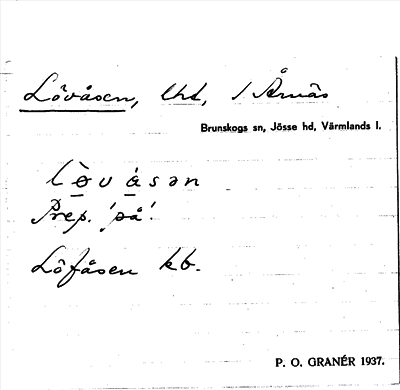 Lövåsen, lht, / Årnäs
Brunskogs sn, Jösse hd, Värmlands l.
lö̀våsən
Prep. 'på'.
Löfåsen kb.
P. O. GRANÉR 1937.